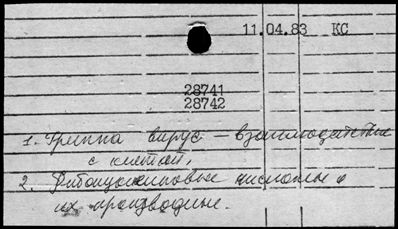 11.04.83 КС
28741
28742
1. Гриппа вирус — взаимодействие
с клеткой,
2. Рибонуклеиновые кислоты и
их производные.